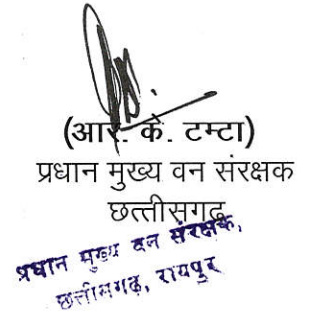 (आर. के. टम्टा)
प्रधान मुख्य वन संरक्षक
छत्तीसगढ़
प्रधान मुख्य वन संरक्षक,
छत्तीसगढ़, रायपुर